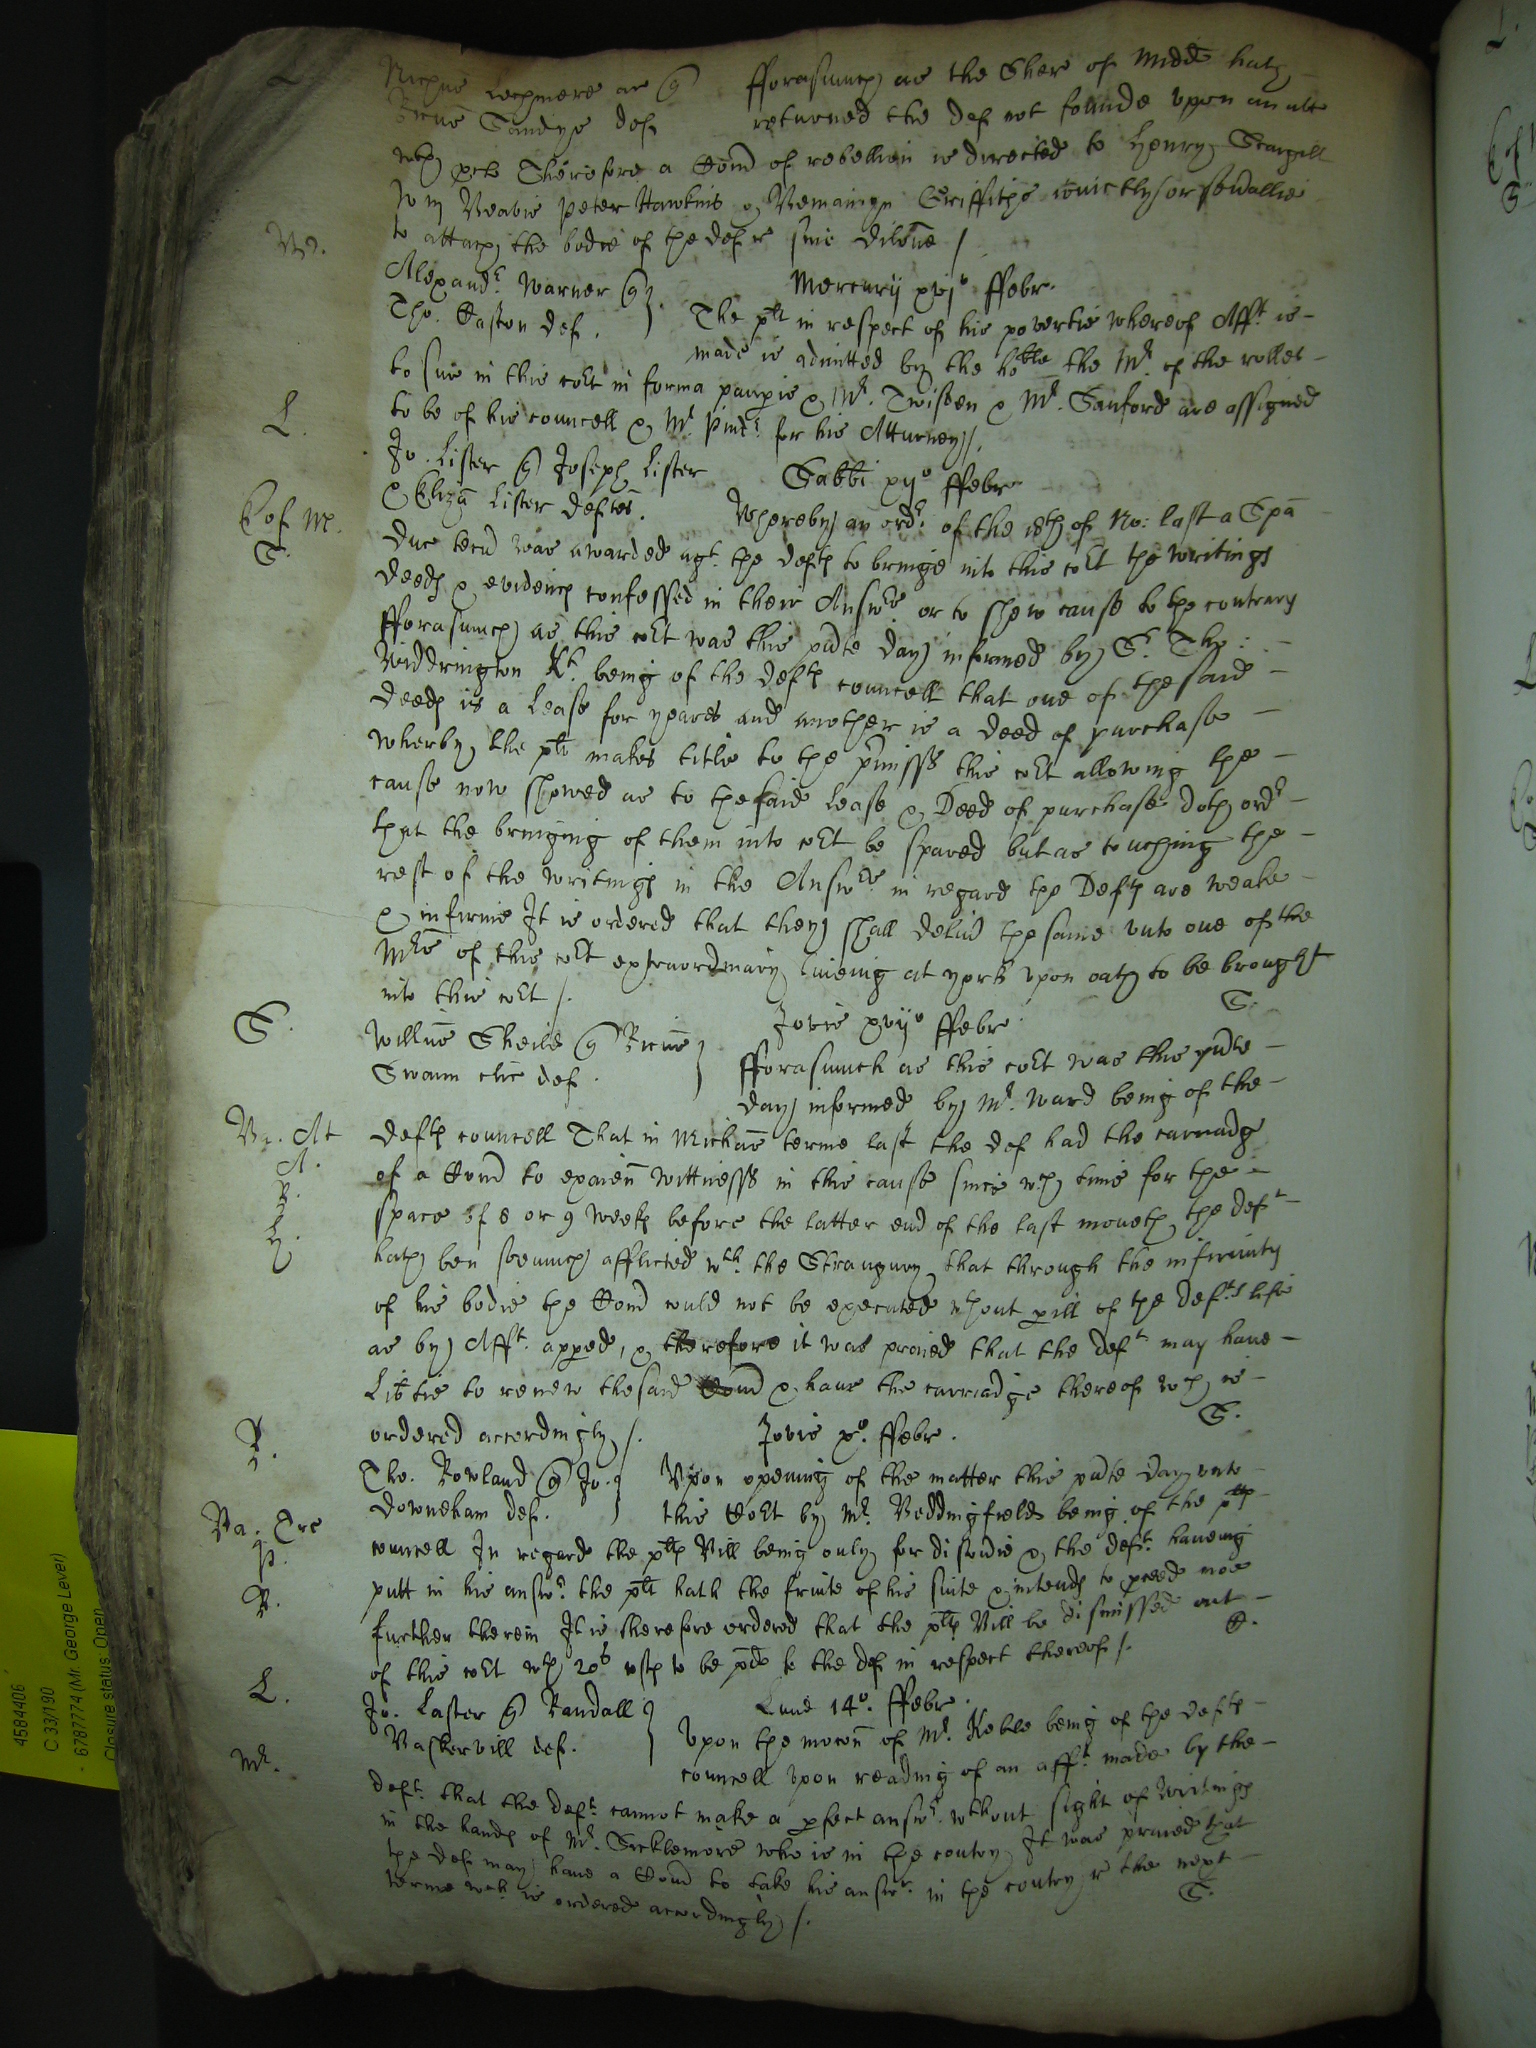 L Nichus Lechmere ar q fforasmuch as the Sher of Midd hath
Ricus Sandys def returned the def not founde upon an att
wth pcl Therefore a Comd of rebellion is directed to Henry Scargill
Wm Beavis Peter Hawkins & Griffiths conictly or sevallie
to attach the bodie of the def r sine dilone /
W. Alexandr Warner q Mercurij xvjo ffebr.
Tho. Easton def. The plt in respect of his povertie whereof Afft is
made is admitted by the hoble the Mr of the rolles
to sue in this cort in forma paupis & Mr. Twisden & Mr. Sanford are assigned
to be of his councell & Mr for his Atturney /.
L. Jo. Lister q Joseph Lister Sabbi xijo ffebr
& Eliza Lister deftes. Whereby an ordr of the 18th of No: last a Spa
E of W. S. Duc tecu was awarded agt. the deftes to bringe into this cort the writings
deedes & evidences confessed in their Answrs or to shew cause to the contrary
fforasmuch as this cort was this pnte day informed by Sr. Tho:
Widdrington Kt. being of the deftes councell that one of the said
deedes is a lease for yeares and another is a deed of purchase
wherby the plt makes title to the pmisses this cort allowing the
cause now shewed as to the said lease & Deed of purchase doth ordr
that the bringing of them into cort be spared but as touching the
rest of the writings in the Answrs in regard the Deftes are weake
& infirme It is ordered that they shall delivr the same unto one of the
Mrs of this cort extraordinary liveing at york upon oath to be brought
into this cort /. S.
S. Willus Sheild q Ricus Jovis xvijo ffebr
Swann clic def. fforasmuch as this cort was this pnte
day informed by Mr. Ward being of the
At deftes councell That in Michas terme last the def had the carriadg
A. of a Comd to examen wittnesses in this cause since wch time for the
R. space of 8 or 9 weekes before the latter end of the last moneth the deft
H. hath ben soe much afflicted wth. the Strangury that through the infirmity
of his bodie the Comd could not be executed wthout pill of the defts life
as by Afft. apped, & therefore it was praied that the deft may have
Libtie to renew the said Comd & have the carriadge thereof wch is
ordered accordingly /. Jovis xo. ffebr. S.
R. Tho. Rowland q Jo. Upon opening of the matter this pnte day unto
Downeham def. this Cort by Mr. Beddingfield being of the pltes
Ba. Tre councell In regard the pltes Bill being only for discovie & the deft. haveing
P. putt in his answr. the plt hath the fruite of his suite & intends to pceede noe
R. further therein It is therefore ordered that the pltes Bill be dismissed out
of this cort wth 20s costes to be pd to the def in respect thereof /. S.
L. Jo. Laster q Randall Lune 14o. ffebr.
Baskervill def. Upon the mocon of Mr. Keble being of the deftes
councell upon reading of an afft. made by the
Mr. deft. that the deft. cannot make a pfect answr. wthout sight of writings
in the handes of Mr. Sicklemore who is in the contry It was praied that
the def may have a Comd to take his answr. in the contry r the next
terme wch. is ordered accordingly /. S.
4584406
C 33/190
6787774 (Mr. George Lever)
Closure status: Open